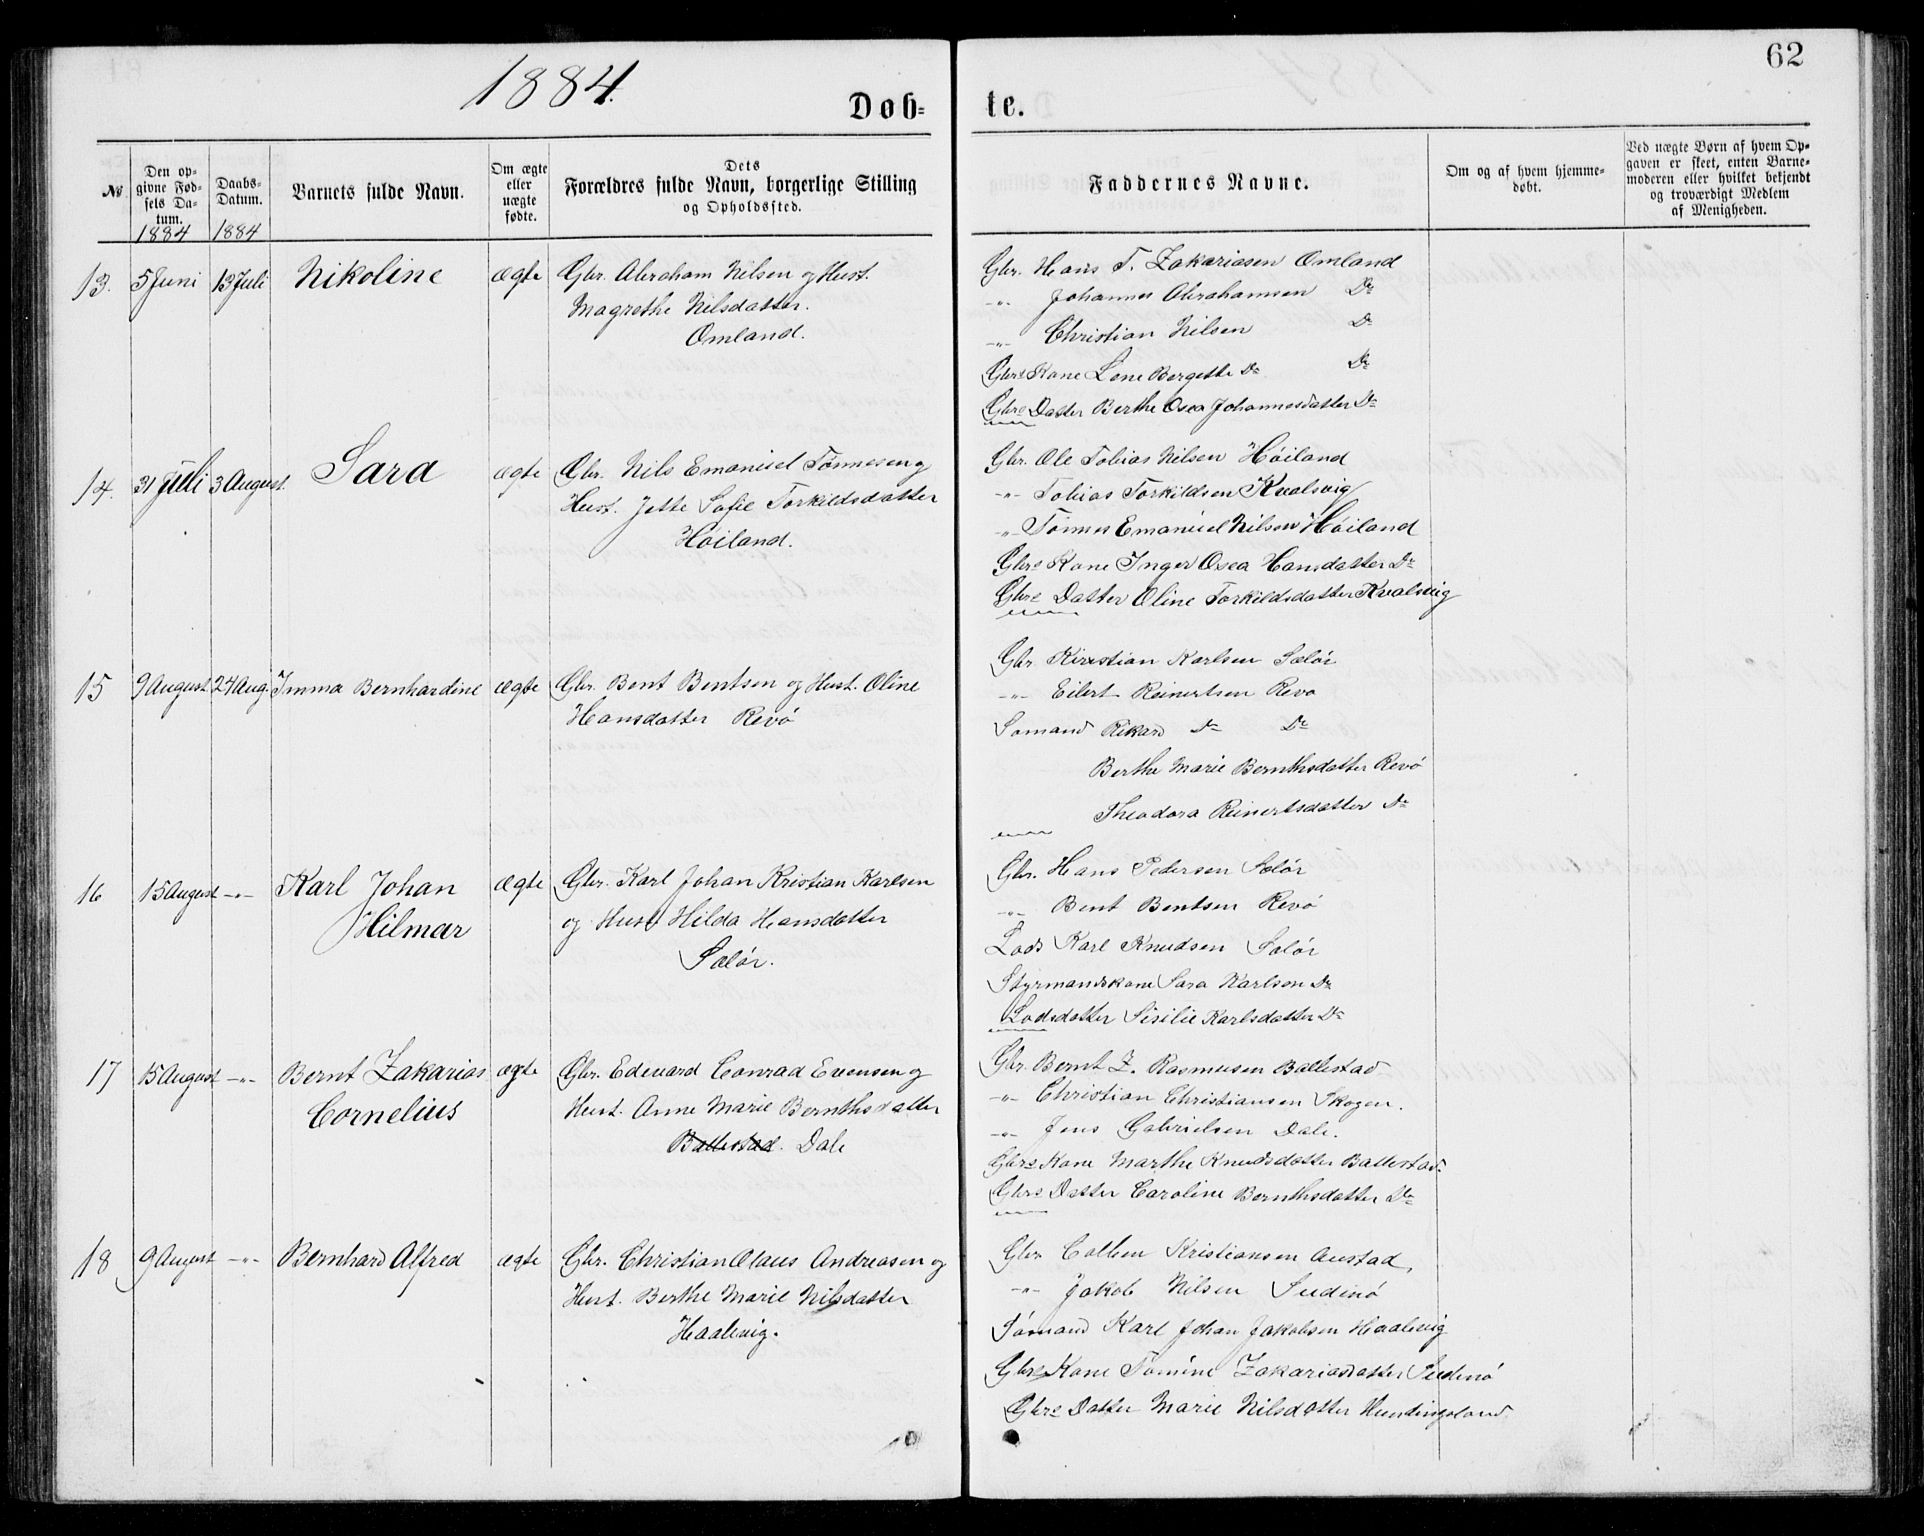 62
1884.
Døb-
te.
№
Den op-
givne Fød-
sels Da-
tum.
1884
Daabs-
Datum.
1884
Barnets fulde Navn.
Om ægte
eller
uægte
fødte.
Dets
Forældres fulde Navn, borgerlige Stilling
og Opholdssted.
Faddernes Navne.
Om og af hvem hjemme-
døbt.
Ved uægte Børn af hvem Op-
gaven er skeet, enten Barne-
moderen eller hvilket bekjendt
og troværdigt Medlem
af Menigheden.
13. 5 Juni 13 Juli Nikoline ægte Gbr. Abraham Nilsen og Hust.
Magrethe Nilsdatter.
Omland.
Gbr. Hans T. Zakariasen Omland
-"- Johannes Abrahamsen Do
-"- Christian Nilsen Do
Gbrs Kone Lene Bergette Do Do
Gbrs Datter Berthe Osea Johannesdatter Do
14. 31 Juli 3 August. Sara ægte Gbr. Nils Emanuel Tønnesen og
Hust. Jette Sofie Torkildsdatter
Høiland.
Gbr. Ole Tobias Nilsen Høiland
-"- Tobias Torkildsen Kvalsvig
-"- Tønnes Emanuel Nilsen Høiland
Gbrs Kone Inger Osea Hansdatter Do
Gbrs Datter Oline Torkildsdatter Kvalsvig
15 9 August 24 Aug. Imma Bernhardine ægte Gbr. Bent Bentsen og Hust. Oline
Hansdatter Revø
Gbr. Kirestian Karlsen Selør
-"- Eilert Reinertsen Revø
Sømand Rikard Do Do
Berthe Marie Bernthsdatter Revø
Theodora Reinertsdatter Do
16 15 August -"- Karl Johan
Hilmar
ægte Gbr. Karl Johan Kristian Karlsen
og Hust Hilda Hansdatter
Selør.
Gbr. Hans Pedersen Selør
-"- Bent Bentsen Revø
Lods Karl Knudsen Selør
Styrmandskone Sara Karlsen Do
Lodsdatter Sisilie Karlsdatter Do
17 15 August -"- Bernt Zakarias
Cornelius
ægte Gbr. Edevard Conrad Evensen og
Hust. Anne Marie Bernthsdatter
Ballestad. Dale
Gbr. Bernt Z. Rasmusen Ballestad
-"- Christian Christiansen Skogen.
-"- Jens Gabrielsen Dale.
Gbrs Kone Marthe Knudsdatter Ballestad
Gbrs Datter Caroline Bernthsdatter Do
18 9 August -"- Bernhard Alfred ægte Gbr. Christian Olaus Andreasen og
Hust. Berthe Marie Nilsdatter
Haalevig.
Gbr Kristiansen Austad,
-"- Jakob Nilsen Sudinø
Sømand Karl Johan Jakobsen Haalevig
Gbrs Kone Tomine Zakariasdatter Sudinø
Gbrs Datter Marie Nilsdatter Huntingsland